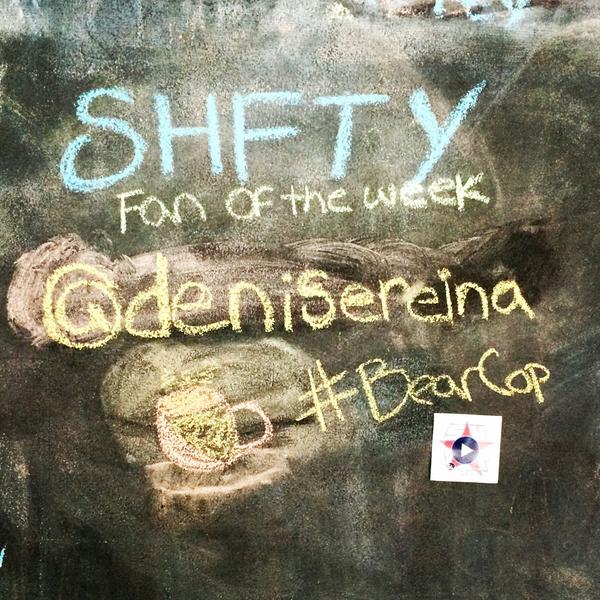 SHFTY
Fan of the week
@denisereina
#BearCop